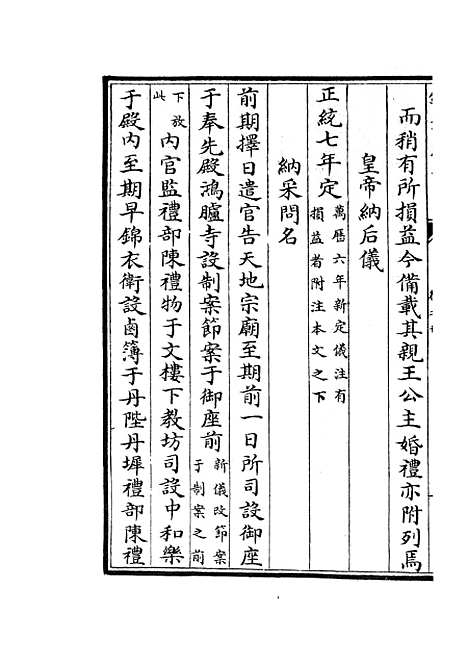 而稍有所損益今備載其親王公主婚禮亦附列焉
皇帝納后儀
正統七年定萬曆六年新定儀注有損益者附注本文之下
納采問名
前期擇日遣官告天地宗廟至期前一日所司設御座
于奉先殿鴻臚寺設制案節案于御座前新儀改節案于制案之前
下放此內官監禮部陳禮物于文樓下教坊司設中和樂
于殿內至期早錦衣衛設鹵簿于丹陛丹墀禮部陳禮